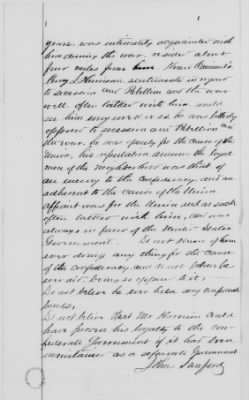 years. was intimately acquainted with
him during the war, reside about
four miles from him
Perry L Harrison sentiments in regard
to secession and Rebellion and the war
well. often talked with him, and
see him very
opposed to secession and Rebellion and
the war. he was openly for the cause of the
Union, his reputation among the loyal
men of the neighborhood was that of
an enemy to the confederacy, and an
adherent to the cause of the Union
Affiant was for the Union and as such
often talked with him, and was
always in favor of the United States
Government. Do not know of him
ever doing any thing for the cause
of the confederacy, and do not believe he
ever did, being so opposed to it.
Do not believe he ever held any confederate
bonds.
Do not believe that Mr Harrison could
have proven his loyalty to the con-
federate Government if it had been
maintained as a separate Government
John Sanford